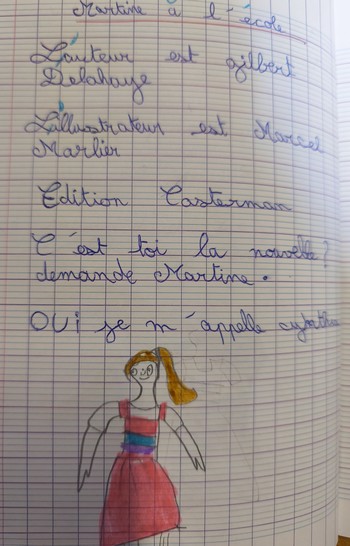 Martine à l'école
L'auteur est gilbert
Delahaye
L'illustrateur est Marcel
Marlier
Edition Casterman
C'est toi la nouvelle ?
demande Martine.
OUi je m'appelle